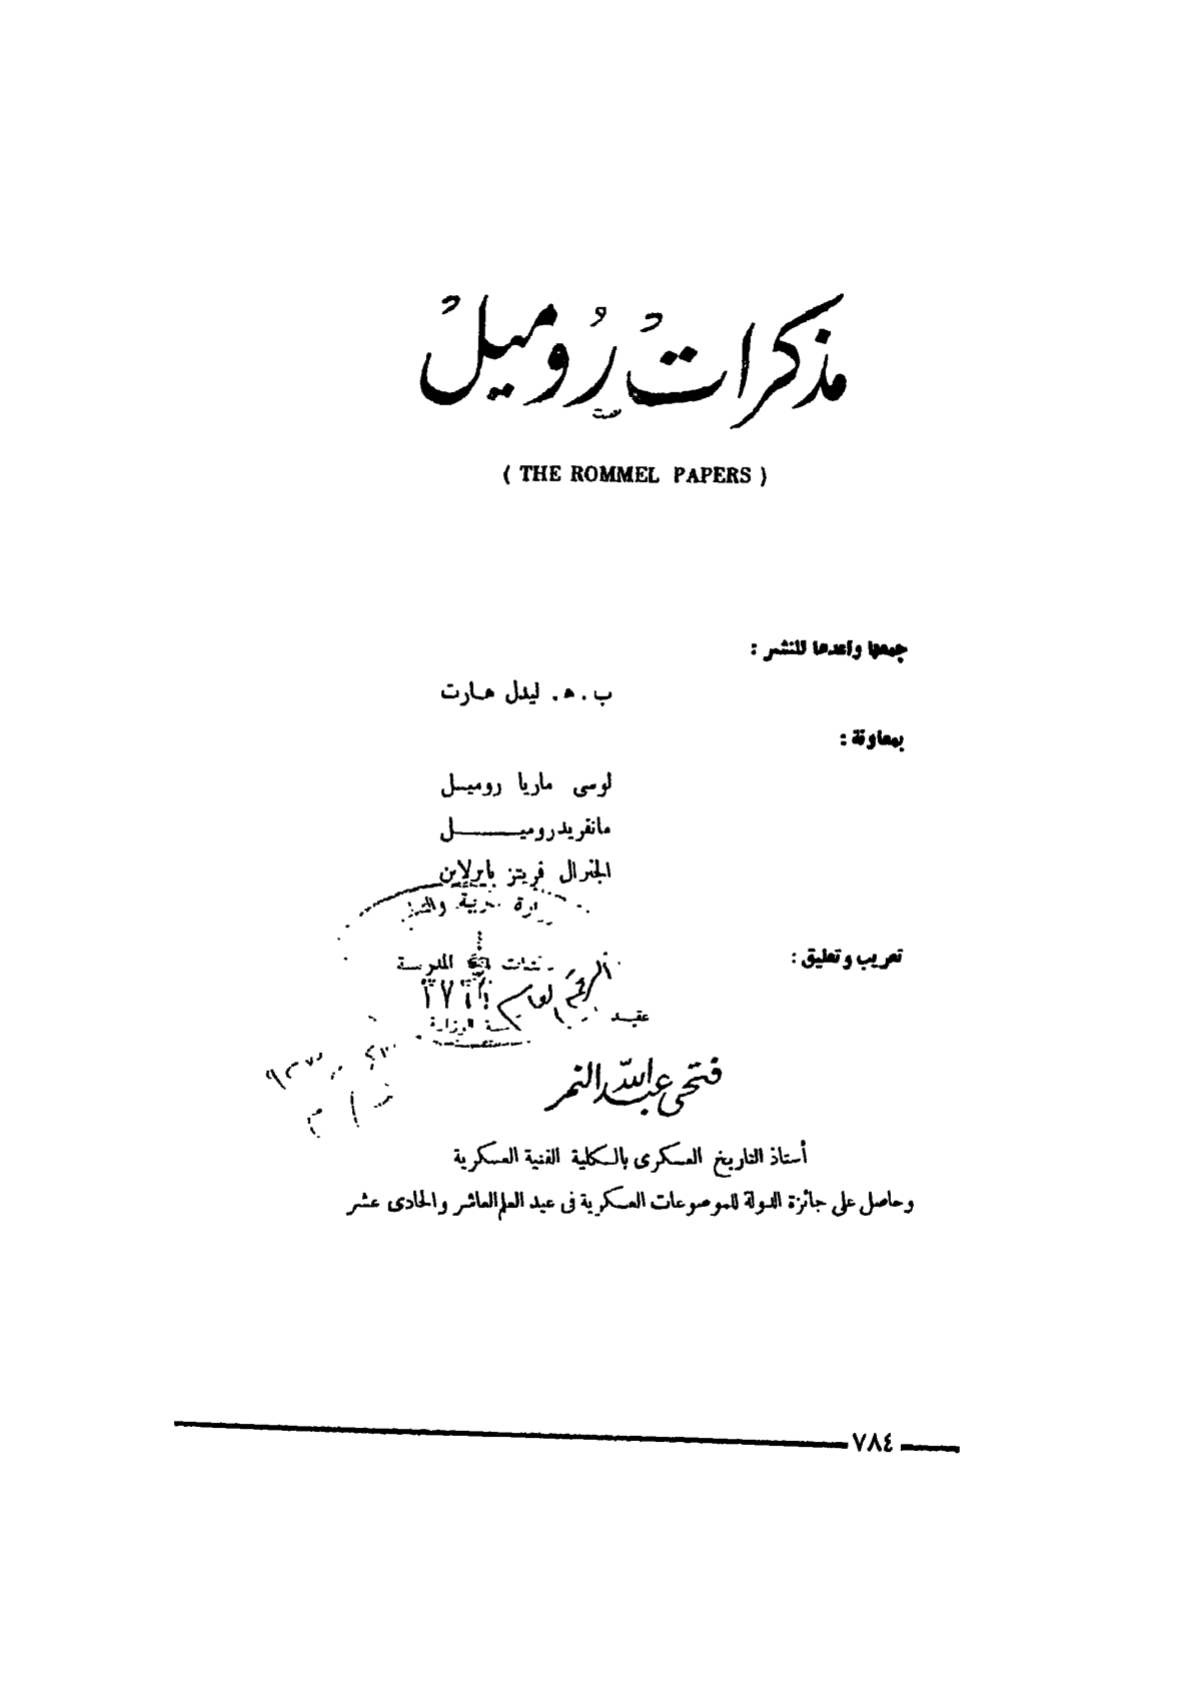 مذكراتُ رُوميلُ
( THE ROMMEL PAPERS )
جمعها وأعدها للنشر :
ب . ه . ليدل هارت
بمعاونة :
لوسى ماريا روميل
مانفريد روميل
الجنرال فريتز بايرلاين
تعريب وتعليق :
المدرسة
الرقم العام
الوزارة
عقيد
فتحى عبد الله النمر
أستاذ التاريخ العسكرى بالكلية الفنية العسكرية
وحاصل على جائزة الدولة للموصوعات العسكرية فى عيد العلم العاشر والحادى عشر
٧٨٤